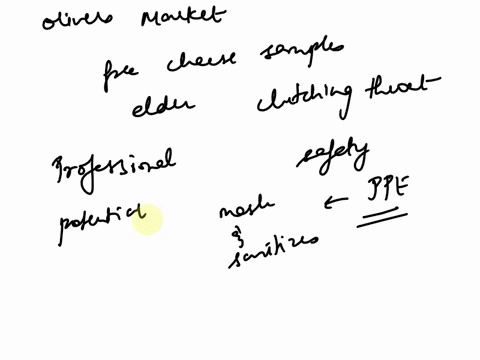 olivers Market
free cheese samples
elder clutching throat
Professional safety
potential mask ← PPE
&
sanitizes